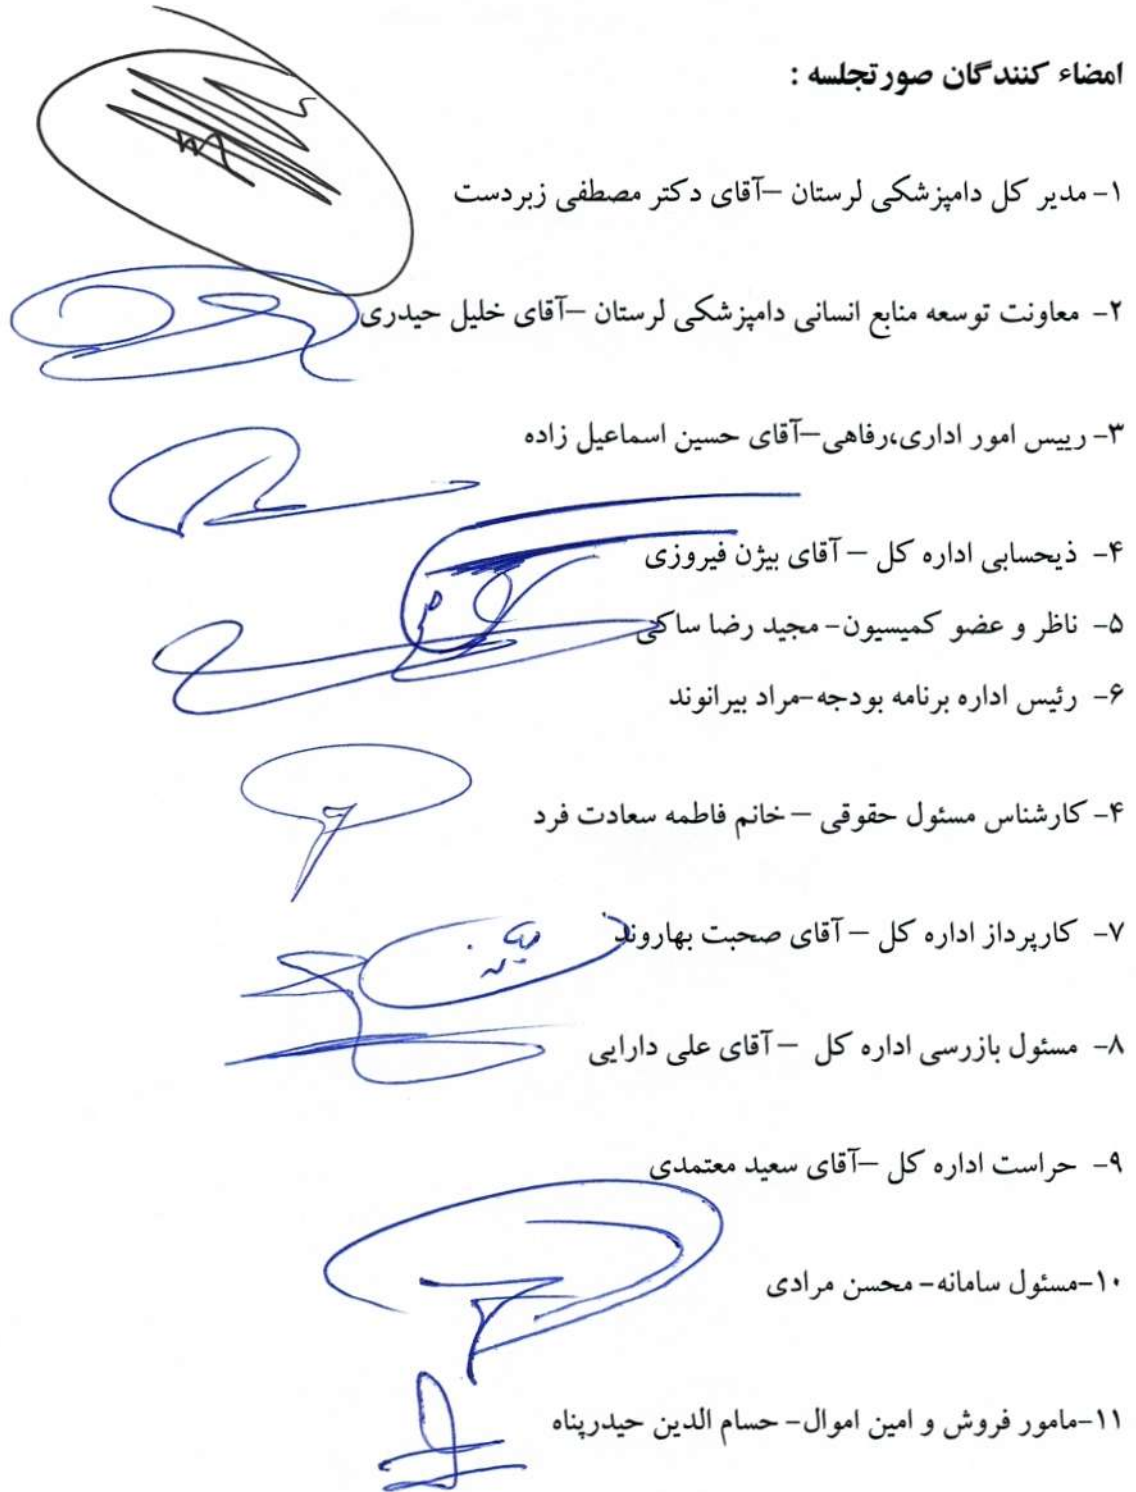 امضاء کنندگان صورتجلسه :
۱- مدیر کل دامپزشکی لرستان –آقای دکتر مصطفی زبردست
۲- معاونت توسعه منابع انسانی دامپزشکی لرستان –آقای خلیل حیدری
۳- رییس امور اداری،رفاهی–آقای حسین اسماعیل زاده
۴- ذیحسابی اداره کل – آقای بیژن فیروزی
۵- ناظر و عضو کمیسیون- مجید رضا ساکی
۶- رئیس اداره برنامه بودجه-مراد بیرانوند
۴- کارشناس مسئول حقوقی – خانم فاطمه سعادت فرد
۷- کارپرداز اداره کل – آقای صحبت بهاروند
۸- مسئول بازرسی اداره کل – آقای علی دارایی
۹- حراست اداره کل –آقای سعید معتمدی
۱۰-مسئول سامانه- محسن مرادی
۱۱-مامور فروش و امین اموال- حسام الدین حیدرپناه